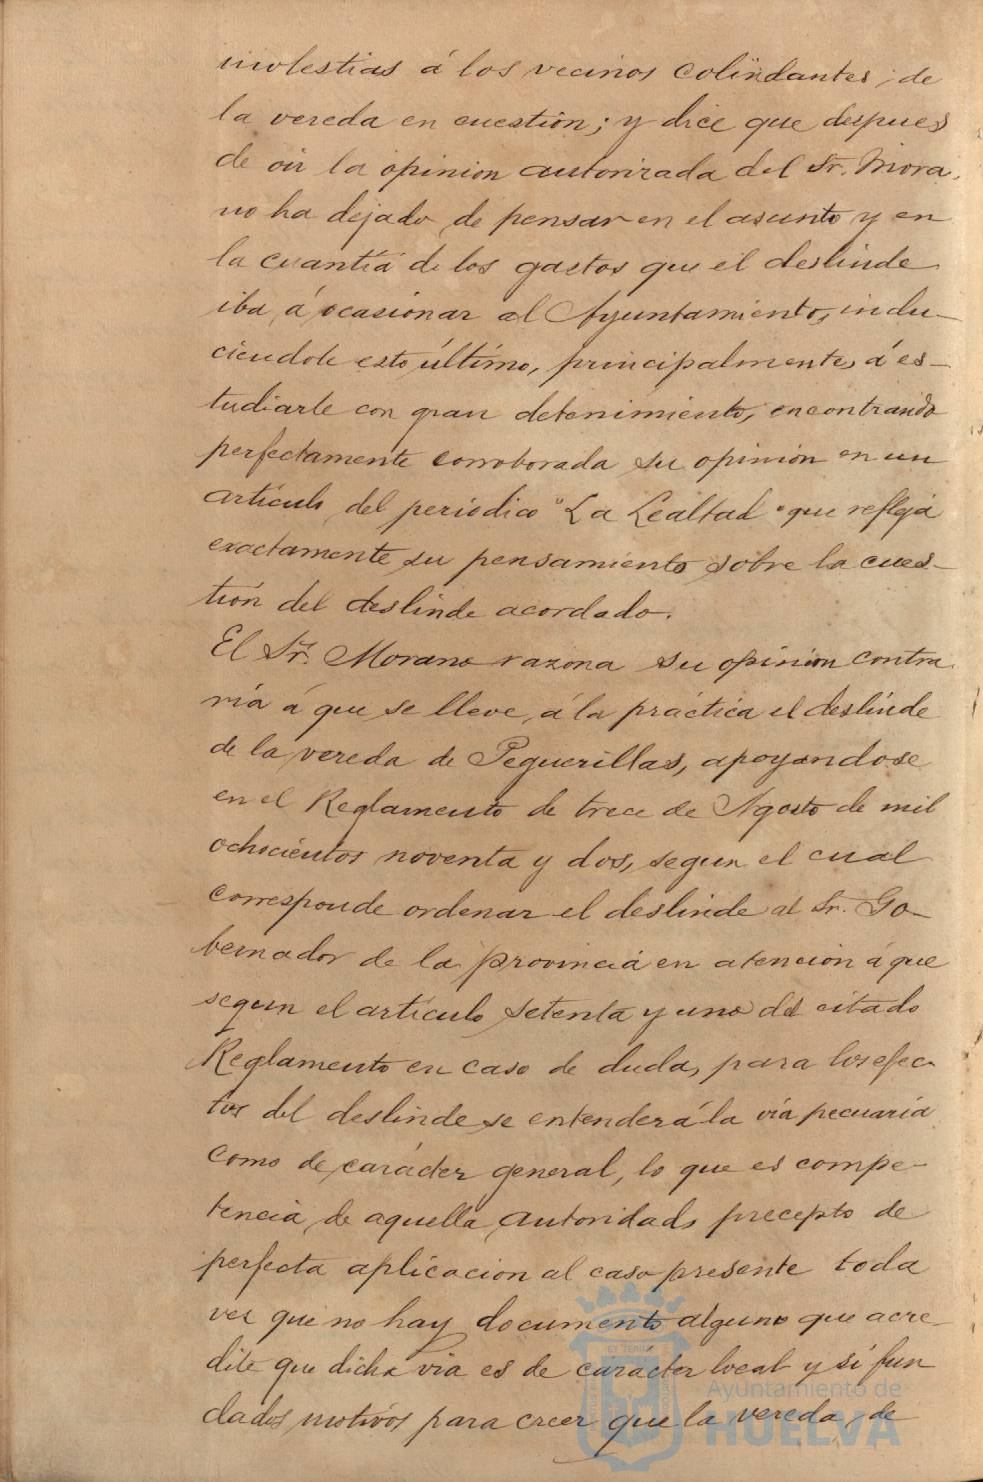 molestias á los vecinos colindantes, de
la vereda en cuestión; y dice que despues
de oir la opinion autorizada del Sr. Mora,
no ha dejado de pensar en el asunto y en
la cuantía de los gastos que el deslinde
iba á ocasionar al Ayuntamiento, indu-
ciendole esto último, principalmente, á es-
tudiarle con gran detenimiento, encontrando
perfectamente corroborada su opinión en un
artículo del periódico "La Lealtad" que refleja
exactamente su pensamiento sobre la cues-
tión del deslinde acordado.
El Sr. Morano razona su opinión contra-
ria á que se lleve á la práctica el deslinde
de la vereda de Peguerillas, apoyandose
en el Reglamento de trece de Agosto de mil
ochocientos noventa y dos, segun el cual
corresponde ordenar el deslinde al Sr. Go-
bernador de la provincia en atención á que
segun el artículo setenta y uno del citado
Reglamento en caso de duda, para los efec-
tos del deslinde se entenderá la vía pecuaria
como de carácter general, lo que es compe-
tencia de aquella autoridad, precepto de
perfecta aplicacion al caso presente toda
vez que no hay documento alguno que acre-
dite que dicha via es de carácter local y sí fun
dados motivos para creer que la vereda de
Ayuntamiento de
HUELVA